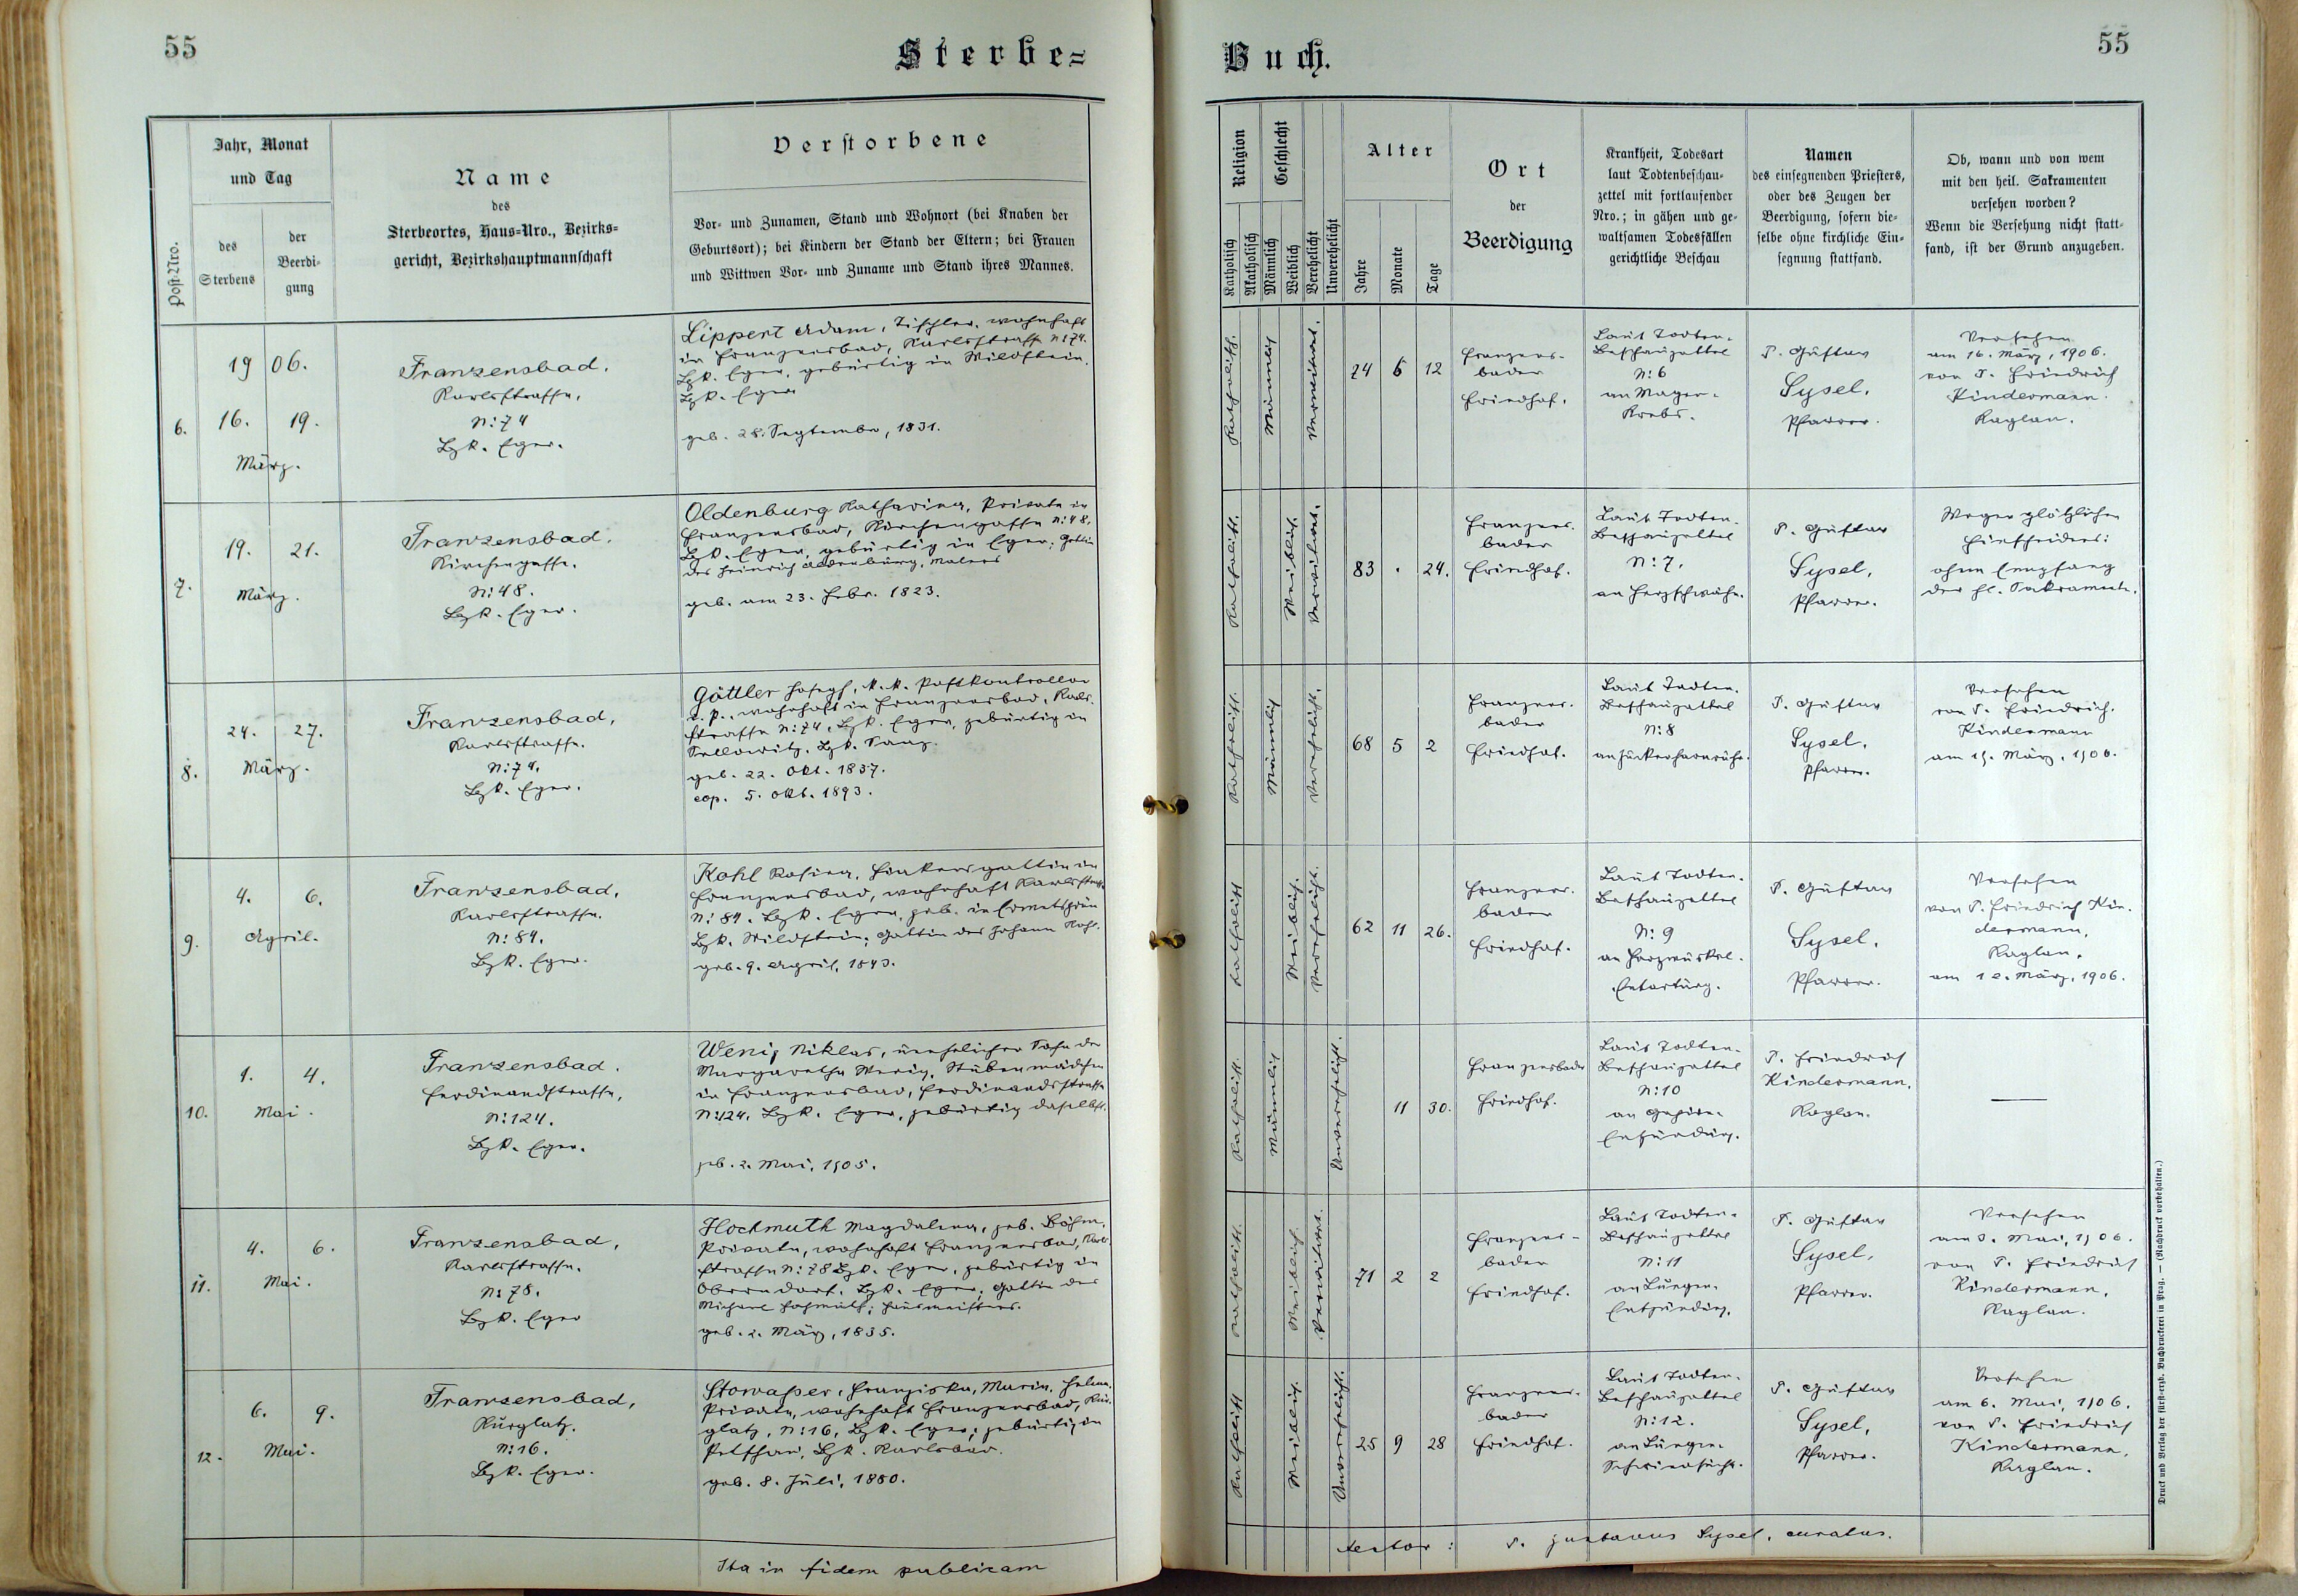 55
Sterbe=
Post-Nro.
Jahr, Monat
und Tag
des
Sterbens
der
Beerdi-
gung
Name
des
Sterbeortes, Haus-Nro., Bezirks-
gericht, Bezirkshauptmannschaft
Verstorbene
Vor- und Zunamen, Stand und Wohnort (bei Knaben der
Geburtsort); bei Kindern der Stand der Eltern; bei Frauen
und Wittwen Vor- und Zuname und Stand ihres Mannes.
6.
19 06.
16. 19.
März.
Franzensbad.
Karlsstrasse,
N: 74
Bzk. Eger.
Lippert Adam, Tischler, wohnhaft
in Franzensbad, Karlsstrasse N: 74.
Bzk. Eger, gebürtig in Wildstein.
Bzk. Eger
geb. 28. September, 1831.
7.
19. 21.
März.
Franzensbad.
Kirchengasse.
N: 48.
Bzk. Eger.
Oldenburg Katharina, Private in
Franzensbad, Kirchengasse N: 48,
Bzk. Eger, gebürtig in Eger; Gattin
des Heinrich Oldenburg, Malers
geb. am 23. Febr. 1823.
8.
24. 27.
März.
Franzensbad,
Karlsstrasse.
N: 74.
Bzk. Eger.
Göttler Josef, k. k. Postkontrollor
i. P., wohnhaft in Franzensbad, Karls-
strasse N: 74, Bzk. Eger, gebürtig in
geb. 22. Okt. 1837.
cop. 5. Okt. 1893.
9.
4. 6.
April.
Franzensbad,
Karlsstrasse.
N: 84.
Bzk. Eger.
Kohl Rosina, Fiakersgattin in
Franzensbad, wohnhaft Karlsstrasse
N: 84. Bzk. Eger, geb. in Ermetsgrün
Bzk. Wildstein; Gattin des Johann Kohl.
geb. 9. April, 1843.
10.
1. 4.
Mai.
Franzensbad.
Ferdinandstrasse,
N: 124.
Bzk. Eger.
Wenig Niklas, unehelicher Sohn der
Margaretha Wenig, Stubenmädchen
in Franzensbad, Ferdinandsstrasse
N: 124. Bzk. Eger, gebürtig daselbst.
geb. 2. Mai, 1905.
11.
4. 6.
Mai.
Franzensbad,
Karlsstrasse.
N: 78.
Bzk. Eger
Hochmuth Magdalena, geb. Böhm,
Private, wohnhaft Franzensbad, Karls-
strasse N: 78 Bzk. Eger, gebürtig in
Oberndorf, Bzk. Eger; Gattin des
Michael Hohmuth, Hausmeisters.
geb. 2. März, 1835.
12.
6. 9.
Mai.
Franzensbad,
Kurplatz.
N: 16.
Bzk. Eger.
Stowasser, Franziska, Maria, Helena,
Private, wohnhaft Franzensbad, Kur-
platz, N: 16, Bzk. Eger; gebürtig in
Petschau, Bzk. Karlsbad.
geb. 8. Juli, 1880.
Ita in fidem publicam
Buch.
55
Religion
Katholisch
Akatholisch
Geschlecht
Männlich
Weiblich
Verehelicht
Unverehelicht
Alter
Jahre
Monate
Tage
Ort
der
Beerdigung
Krankheit, Todesart
laut Todtenbeschau-
zettel mit fortlaufender
Nro.; in gähen und ge-
waltsamen Todesfällen
gerichtliche Beschau
Namen
des einsegnenden Priesters,
oder des Zeugen der
Beerdigung, sofern die-
selbe ohne kirchliche Ein-
segnung stattfand.
Ob, wann und von wem
mit den heil. Sakramenten
versehen worden?
Wenn die Versehung nicht statt-
fand, ist der Grund anzugeben.
Katholisch.
Männlich
Verwitwet.
74 6 12
Franzens-
bader
Friedhof.
Laut Todten-
Beschauzettel
N: 6
an Magen-
Krebs.
P. Gustav
Sysel,
Pfarrer.
Versehen
am 16. März, 1906.
von P. Friedrich
Kindermann.
Kaplan.
Katholisch.
Weiblich.
Verwitwet.
83 . 24.
Franzens-
bader
Friedhof.
Laut Todten-
Beschauzettel
N: 7.
an Herzschwäche.
P. Gustav
Sysel,
Pfarrer.
Wegen plötzlichen
Hinscheidens:
ohne Empfang
der hl. Sakramente.
Katholisch.
Männlich
Verehelicht.
68 5 2
Franzens-
bader
Friedhof.
Laut Todten-
Beschauzettel
N: 8
an Zuckerharnruhr.
P. Gustav
Sysel,
Pfarrer.
Versehen
von P. Friedrich.
Kindermann
am 19. März, 1906.
Katholisch
Weiblich.
Verehelicht.
62 11 26.
Franzens-
bader
Friedhof.
Laut Todten-
Beschauzettel
N: 9
an Herzmuskel-
Entartung.
P. Gustav
Sysel,
Pfarrer.
Versehen
von P. Friedrich Kin-
dermann,
Kaplan,
am März, 1906.
Katholisch.
Männlich
Unverehelicht.
11 30.
Franzensbader
Friedhof.
Laut Todten-
Beschauzettel
N: 10
an Gehirn-
Entzündung.
P. Friedrich
Kindermann,
Kaplan.
Katholisch.
Weiblich.
Verwitwet.
71 2 2
Franzens-
bader
Friedhof.
Laut Todten-
Beschauzettel
N: 11
an Lungen-
Entzündung.
P. Gustav
Sysel,
Pfarrer.
Versehen
am 3. Mai, 1906.
von P. Friedrich
Kindermann,
Kaplan.
Katholisch
Weiblich.
Unverehelicht.
25 9 28
Franzens-
bader
Friedhof.
Laut Todten-
Beschauzettel
N: 12.
an Lungen-
Schwindsucht.
P. Gustav
Sysel,
Pfarrer.
Versehen
am 6. Mai, 1906.
von P. Friedrich
Kindermann,
Kaplan.
testor: P. Gustavus Sysel, curatus.
Druck und Verlag der fürst-erzb. Buchdruckerei in Prag. — (Nachdruck vorbehalten.)